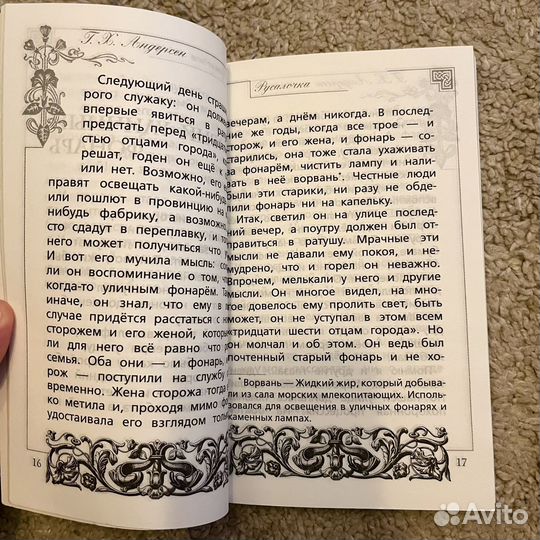 Г. Х. Андерсен
Следующий день страш
рого служаку: он долже
впервые явиться в ра
предстать перед «тридцат
стью отцами города»,
решат, годен он ещё к
или нет. Возможно, его
правят освещать какой-нибуд
или пошлют в провинцию на
нибудь фабрику, а возможно
сто сдадут в переплавку, и то
него может получиться что
И вот его мучила мысль: со
он воспоминание о том, ч
когда-то уличным фонарём. Та
иначе, он знал, что ему в
случае придётся расстаться с
сторожем и его женой, котор
ли для него всё равно что р
семья. Оба они — и фонарь,
рож — поступили на службу
временно. Жена сторожа тогда
ко метила и, проходя мимо ф
удостаивала его взглядом толь
16
Русалочка
вечерам, а днём никогда. В послед-
ние же годы, когда все трое — и
сторож, и его жена, и фонарь — со-
старились, она тоже стала ухаживать
за фонарём, чистить лампу и нали-
вать в неё ворвань*. Честные люди
были эти старики, ни разу не обде-
лили фонарь ни на капельку.
Итак, светил он на улице послед-
ний вечер, а поутру должен был от-
правиться в ратушу. Мрачные эти
мысли не давали ему покоя, и не-
мудрено, что и горел он неважно.
Впрочем, мелькали у него и другие
мысли. Он многое видел, на мно-
гое довелось ему пролить свет, быть
может, он не уступал в этом всем
«тридцати шести отцам города». Но
он молчал и об этом. Он ведь был
почтенный старый фонарь и не хо-
* Ворвань — Жидкий жир, который добыва-
ли из сала морских млекопитающих. Исполь-
зовался для освещения в уличных фонарях и
каменных лампах.
17
Avito